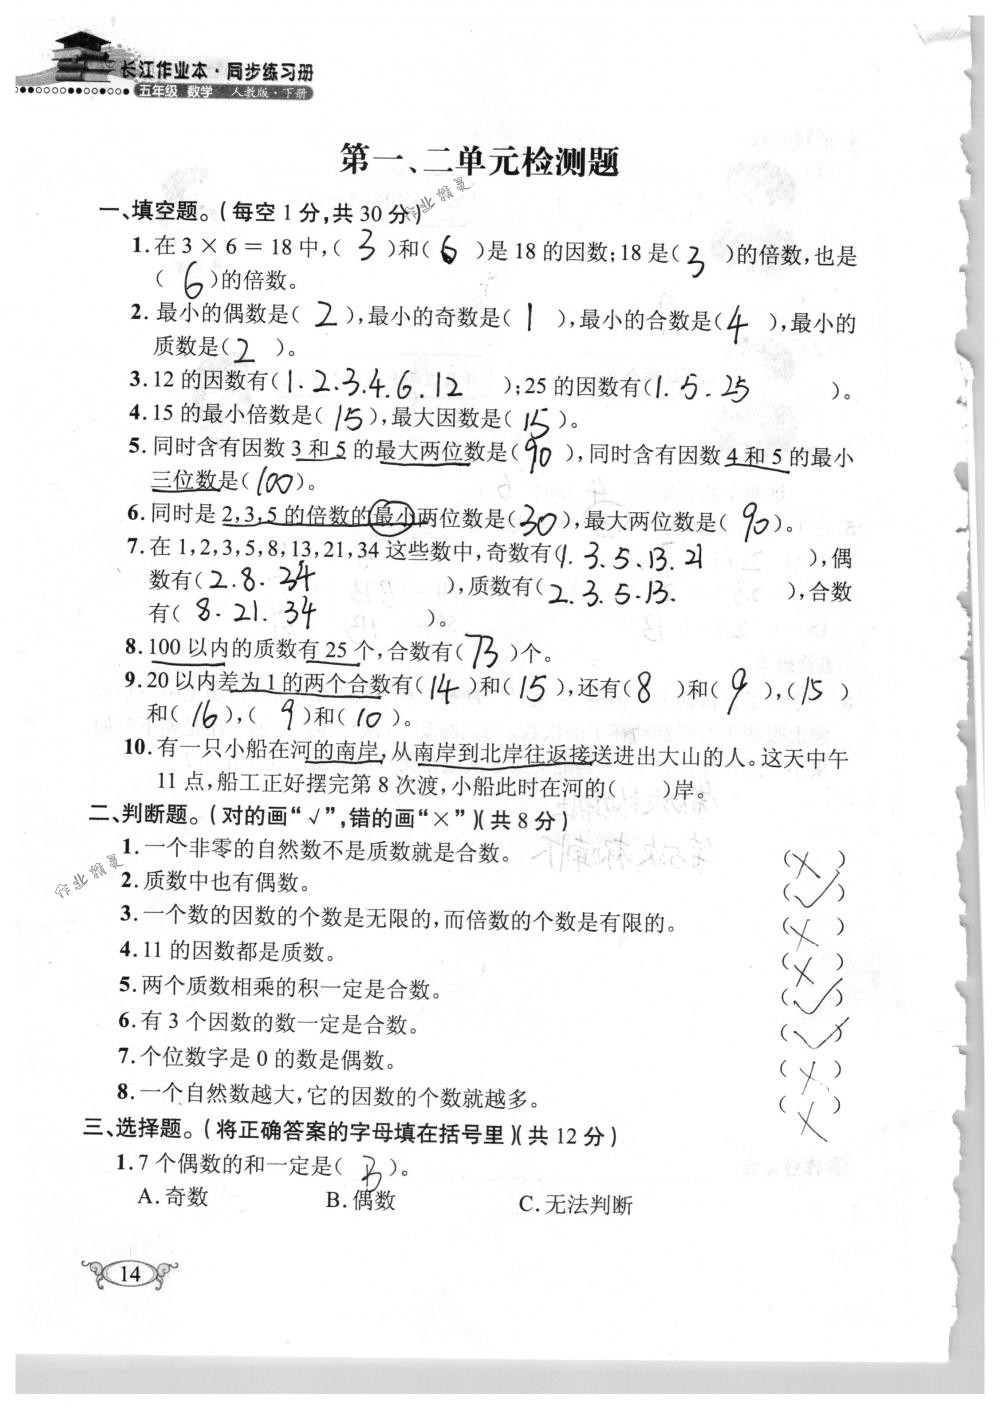 长江作业本·同步练习册
五年级 数学 人教版·下册
第一、二单元检测题
作业精灵
一、填空题。(每空1分,共30分)
1.在3×6=18中,( 3 )和( 6 )是18的因数;18是( 3 )的倍数,也是
( 6 )的倍数。
2.最小的偶数是( 2 ),最小的奇数是( 1 ),最小的合数是( 4 ),最小的
质数是( 2 )。
3.12的因数有( 1.2.3.4.6.12 );25的因数有( 1.5.25 )。
4.15的最小倍数是( 15 ),最大因数是( 15 )。
5.同时含有因数3和5的最大两位数是( 90 ),同时含有因数4和5的最小
三位数是( 100 )。
6.同时是2,3,5的倍数的最小两位数是( 30 ),最大两位数是( 90 )。
7.在1,2,3,5,8,13,21,34这些数中,奇数有( 1.3.5.13.21 ),偶
数有( 2.8.34 ),质数有( 2.3.5.13. ),合数
有( 8.21.34 )。
8.100以内的质数有25个,合数有( 73 )个。
9.20以内差为1的两个合数有( 14 )和( 15 ),还有( 8 )和( 9 ),( 15 )
和( 16 ),( 9 )和( 10 )。
10.有一只小船在河的南岸,从南岸到北岸往返接送进出大山的人。这天中午
11点,船工正好摆完第8次渡,小船此时在河的( )岸。
二、判断题。(对的画“√”,错的画“×”)(共8分)
1.一个非零的自然数不是质数就是合数。 (×)
作业精灵
2.质数中也有偶数。 (√)
3.一个数的因数的个数是无限的,而倍数的个数是有限的。 (×)
4.11的因数都是质数。 (×)
5.两个质数相乘的积一定是合数。 (√)
6.有3个因数的数一定是合数。 (√)
7.个位数字是0的数是偶数。 (×)
8.一个自然数越大,它的因数的个数就越多。 (×)
三、选择题。(将正确答案的字母填在括号里)(共12分)
1.7个偶数的和一定是( B )。
A.奇数 B.偶数 C.无法判断
14